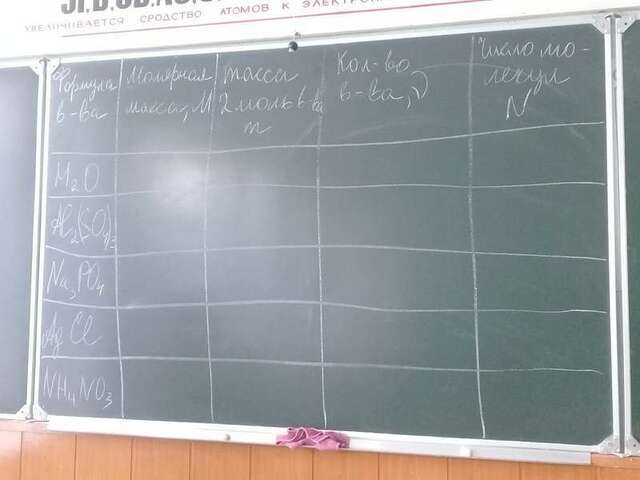 УВЕЛИЧИВАЕТСЯ СРОДСТВО АТОМОВ К
Формула
в-ва
Молярная
масса, M
масса
2 моль в-ва
m
Кол-во
в-ва, ν
Число мо-
лекул
N
H₂O
Al₂(SO₄)₃
Na₃PO₄
AgCl
NH₄NO₃